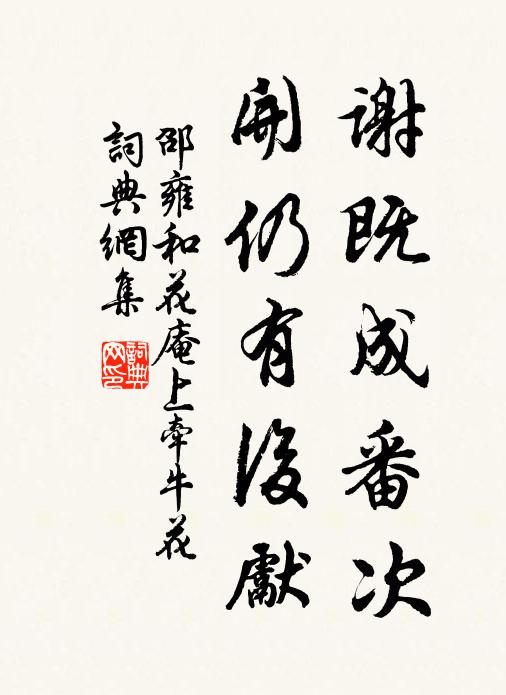 謝既成番次
開仍有後獻
邵雍和花庵上牽牛花
詞典網集
詞典網印